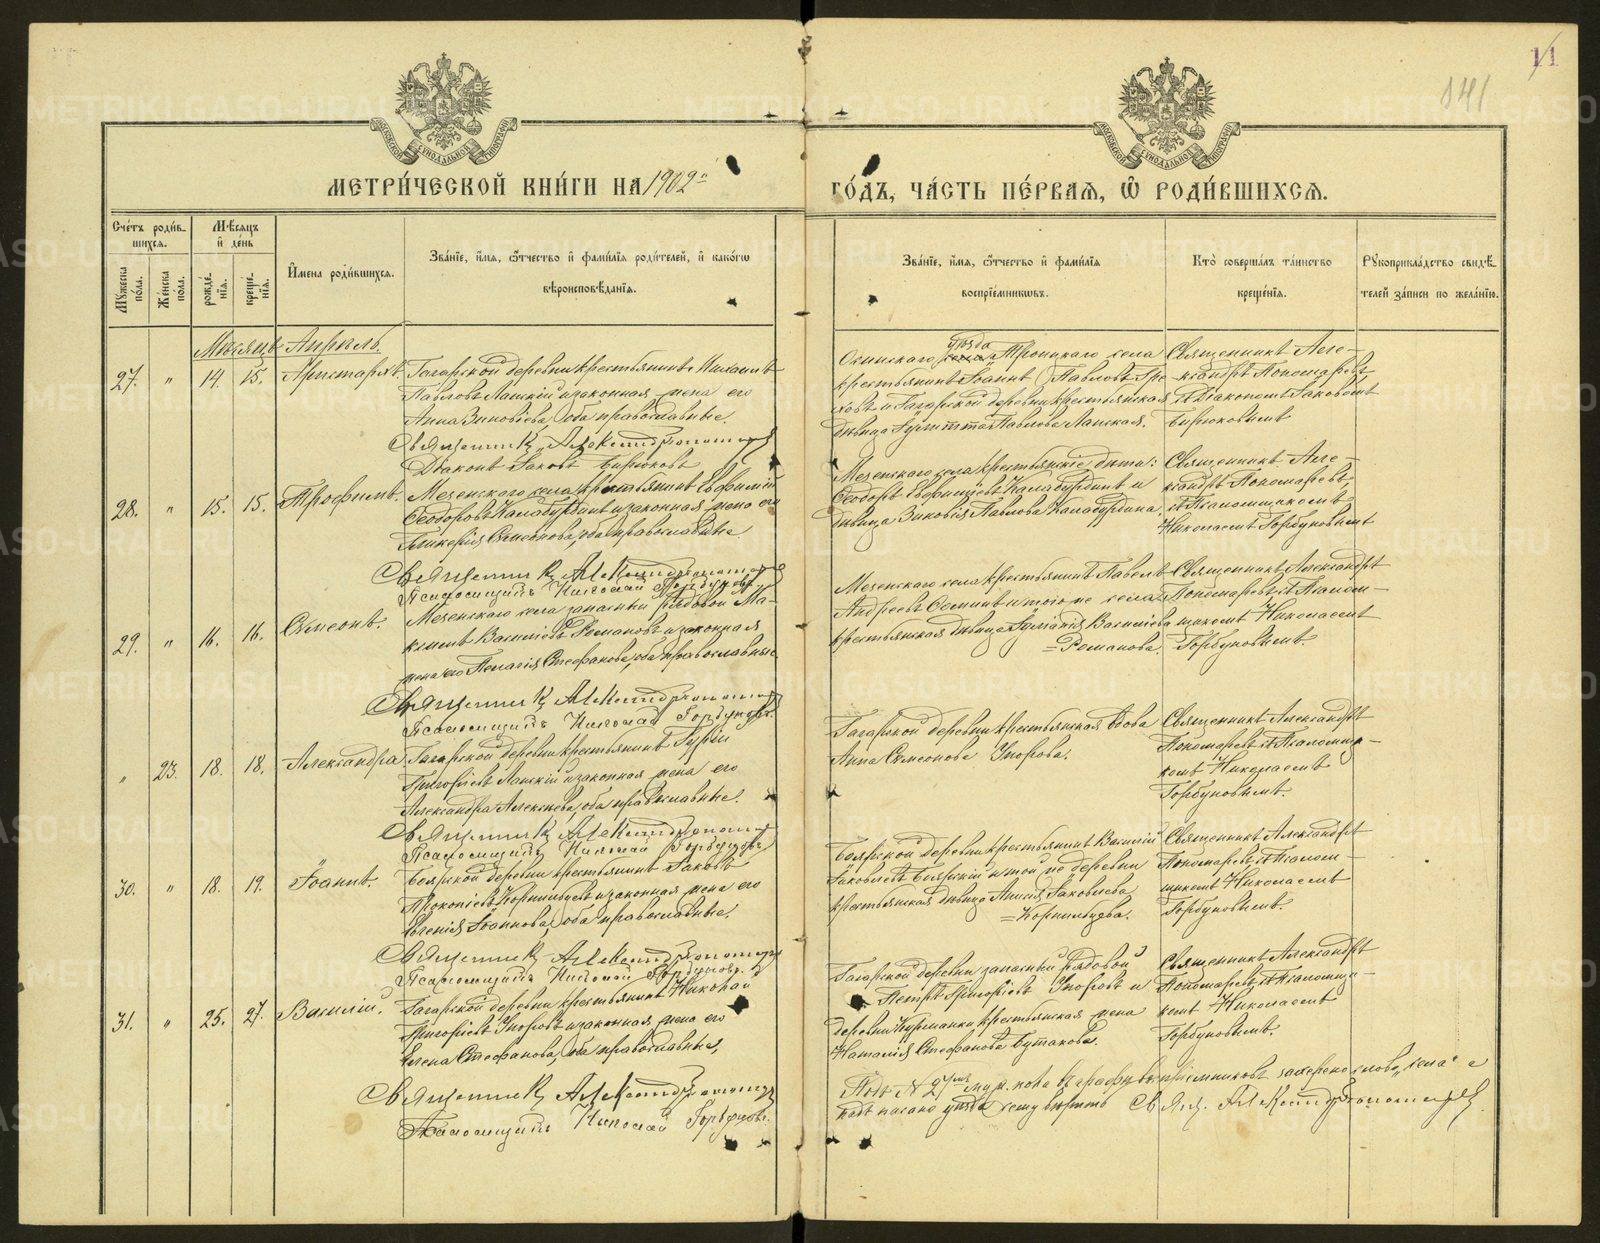 11
141
МЕТРИ́ЧЕСКОЙ КНИ́ГИ НА 1902й
ГО́ДЪ, ЧА́СТЬ ПЕ́РВАЯ, Ѡ РОДИ́ВШИХСЯ.
Сче́тъ роди́в-
шихся.
Мѣ́сяцъ
и҆ де́нь
Мꙋжеска
по́ла.
Же́нска
по́ла.
рожде́-
нїѧ.
креще́-
нїѧ.
И҆мена роди́вшихсѧ.
Зва́нїе, и҆́мѧ, ѻ҆́тчество и҆ фами́лїѧ роди́телей, и҆ како́гѡ
вѣроисповѣ́данїѧ.
Зва́нїе, и҆́мѧ, ѻ҆́тчество и҆ фами́лїѧ
воспрїе́мникѡвъ.
Кто̀ соверша́лъ та́инство
креще́нїѧ.
Рꙋкоприкла́дство свидѣ́-
телей за́писи по жела́нїю.
Мѣсяцъ Апрѣль.
27. " 14. 15. Аристархъ.
Гагарской деревни крестьянинъ Михаилъ
Павловъ Ланскій и законная жена его
Анна Зиновіева, оба православные.
Священникъ Александръ Пономаревъ
Діаконъ Іаковъ Бирюковъ
уѣзда
Осинскаго Троицкаго села
крестьянинъ Іоаннъ Павловъ
и Гагарской деревни крестьянская
дѣвица Павлова Ланская.
Священникъ Але-
ксандръ Пономаревъ
съ Діакономъ Іаковомъ
Бирюковымъ
28. " 15. 15. Трофимъ.
Мезенскаго села крестьянинъ Евфимій
Ѳеодоровъ Калабурдинъ и законная жена его
Гликерія Симеонова, оба православные
Священникъ Александръ Пономаревъ
Псаломщикъ Николай Горбуновъ
Мезенскаго села крестьянскіе дѣти:
Ѳеодоръ Евфиміевъ Калабурдинъ и
дѣвица Зиновія Павлова Калабурдина
Священникъ Але-
ксандръ Пономаревъ,
съ Псаломщикомъ
Николаемъ Горбуновымъ
29. " 16. 16. Симеонъ.
Мезенскаго села запасный рядовой Ма-
ксимъ Васильевъ Романовъ и законная
жена его Пелагія Стефанова, оба православные
Священникъ Александръ Пономаревъ
Псаломщикъ Николай Горбуновъ.
Мезенскаго села крестьянинъ Павелъ
Андреевъ Сёминъ и того же села
крестьянская дѣвица Васильева
=Романова.
Священникъ Александръ
Пономаревъ съ Псалом-
щикомъ Николаемъ
Горбуновымъ.
" 23. 18. 18. Александра
Гагарской деревни крестьянинъ Гурій
Григорьевъ Ланскій и законная жена его
Александра Алексѣева, оба православные.
Священникъ Александръ Пономаревъ
Псаломщикъ Николай Горбуновъ
Гагарской деревни крестьянская вдова
Анна Симеонова Упорова.
Священникъ Александръ
Пономаревъ съ Псаломщи-
комъ Николаемъ
Горбуновымъ.
30. " 18. 19. Іоаннъ.
Боярской деревни крестьянинъ Іаковъ
Прокопіевъ Корнильцевъ и законная жена его
Евгенія Іоаннова, оба православные.
Священникъ Александръ Пономаревъ
Псаломщикъ Николай Горбуновъ
Боярской деревни крестьянинъ Василій
Іаковлевъ Боярскій и той же деревни
крестьянская дѣвица Анисія Іаковлева
=Корнильцева.
Священникъ Александръ
Пономаревъ, съ Псалом-
щикомъ Николаемъ
Горбуновымъ.
31. " 25. 27. Василій.
Гагарской деревни крестьянинъ Николай
Григорьевъ Упоровъ и законная жена его
Елена Стефанова, оба православные,
Священникъ Александръ Пономаревъ
Псаломщикъ Николай Горбуновъ.
Гагарской деревни запасный рядовой
Петръ Григорьевъ Упоровъ и
деревни Курманки крестьянская жена
Наталія Стефанова Бутакова.
Священникъ Александръ
Пономаревъ съ Псаломщи-
комъ Николаемъ
Горбуновымъ.
Подъ № 27мъ муж. пола въ графѣ воспріемниковъ зачеркнуто слово „села“ а
надъ писано уѣзда чему вѣрить Свящ. Александръ Пономаревъ.
METRIKI.GASO-URAL.RU